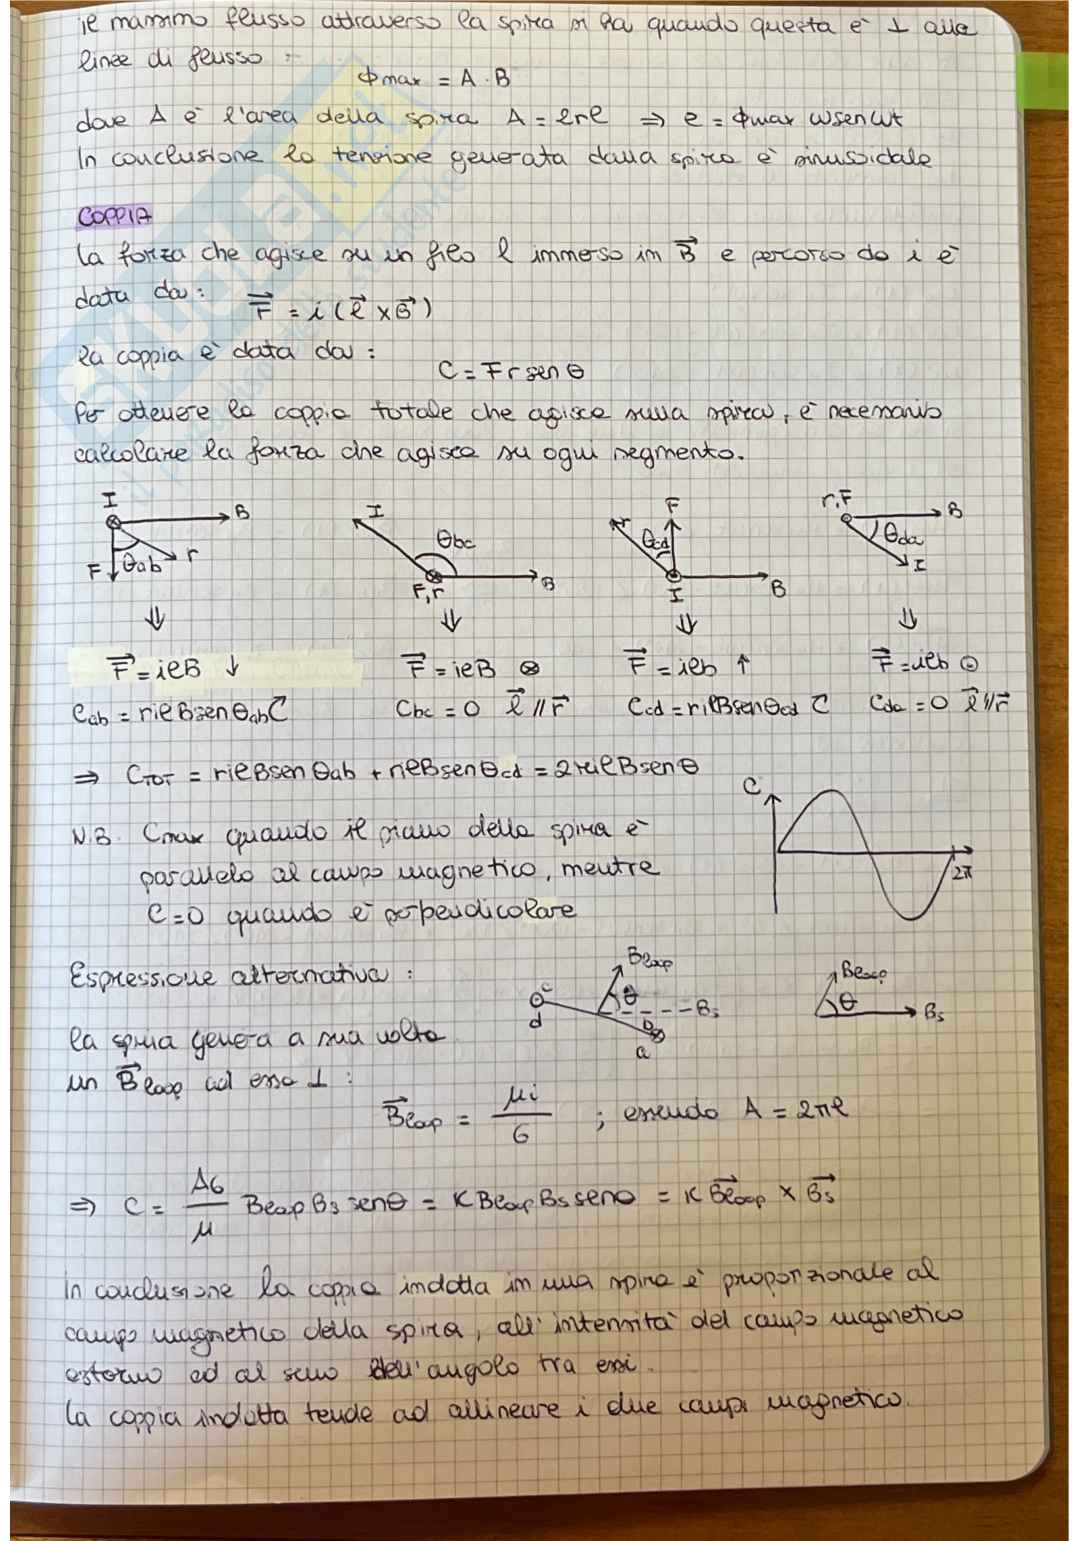 il massimo flusso attraverso la spira si ha quando questa è ⊥ alle
linee di flusso :
ϕmax = A · B
dove A è l'area della spira A = 2rl ⇒ e = ϕmax ωsenωt
In conclusione la tensione generata dalla spira è sinusoidale
COPPIA
la forza che agisce su un filo l immerso in B⃗ e percorso da i è
data da : F⃗ = i (l⃗ × B⃗)
la coppia è data da :
C = F r sen θ
Per ottenere la coppia totale che agisce sulla spira, è necessario
calcolare la forza che agisce su ogni segmento.
I B F θab r
I θbc F,r B
F r θcd I B
r,F B θda I
⇓ ⇓ ⇓ ⇓
F⃗ = ilB ↓ F⃗ = ilB ⊗ F⃗ = ilb ↑ F⃗ = ilb ⊙
Cab = rilBsenθab Cbc = 0 l⃗ // r⃗ Ccd = rilBsenθcd Cda = 0 l⃗ // r⃗
⇒ CTOT = rilBsen θab + rilBsenθcd = 2rilBsenθ
C 2π
N.B. Cmax quando il piano della spira è
parallelo al campo magnetico, mentre
C=0 quando è perpendicolare
Espressione alternativa :
Bloop θ Bs c d b a
Bloop θ Bs
la spira genera a sua volta
un B⃗loop ad essa ⊥ :
B⃗loop = μi / G ; essendo A = 2rl
⇒ C = AG / μ Bloop Bs senθ = K Bloop Bs senθ = K B⃗loop × B⃗s
in conclusione la coppia indotta in una spira è proporzionale al
campo magnetico della spira, all'intensità del campo magnetico
esterno ed al seno dell'angolo tra essi.
la coppia indotta tende ad allineare i due campi magnetico.